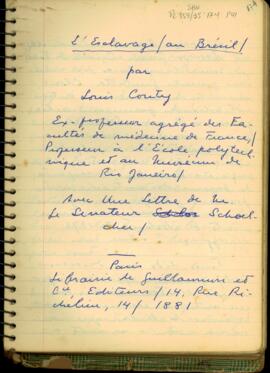 L'Esclavage/au Brésil/
par
Louis Couty
Ex-professor agrégé des Fa-
cultés de médicine de France,/
Professor à l'École polytech-
nique et au Muséum de
Rio Janeiro/
Avec Une Lettre de M.
Le Senateur Schoel-
cher/
Paris
Librairie de Guillaumin et
Cie, Editeurs/14, Rue Ri-
chelieu, 14/1881